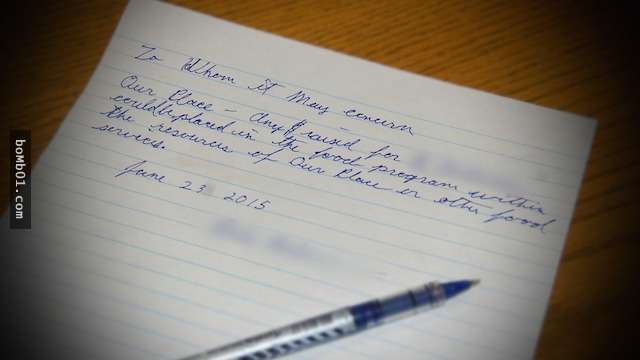 To Whom It May concern
Our Place - Any $ raised for
could be placed in the food program within
the resources of Our Place or other food
services.
June 23 2015
boMb01.com